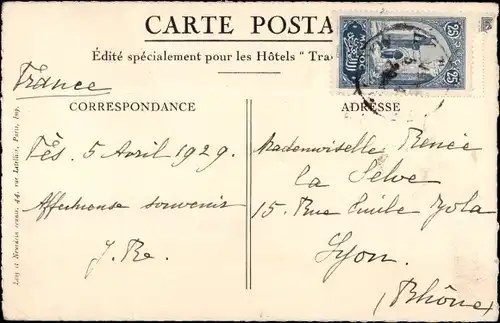 CARTE POSTA
Édité spécialement pour les Hôtels " Tra
France
CORRESPONDANCE
ADRESSE
25 25
MAROC
Fès. 5 Avril 1929.
Affectueuse souvenir
J. Re.
Mademoiselle Renée
La Selve
15. Rue Emile Zola
Lyon.
(Rhône)
Lévy et Neurdein réunis, 44, rue Letellier, Paris, Imp.